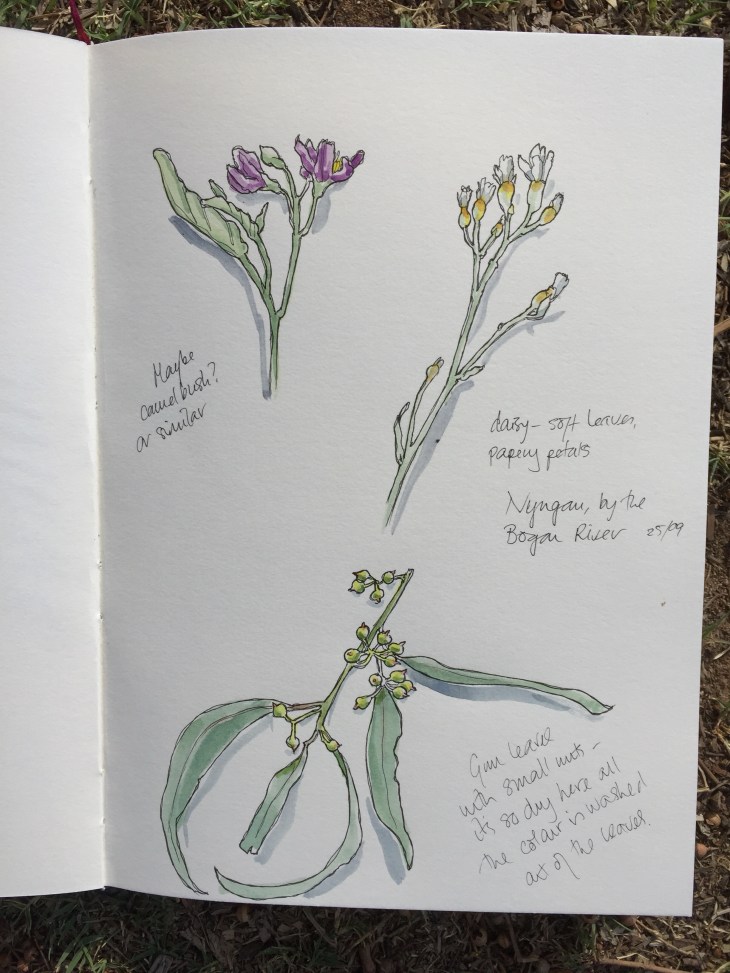 Maybe
camel bush?
or similar
daisy – soft leaves,
papery petals
Nyngan, by the
Bogan River 25/09
Gum leaves
with small nuts –
it's so dry here all
the colour is washed
out of the leaves.